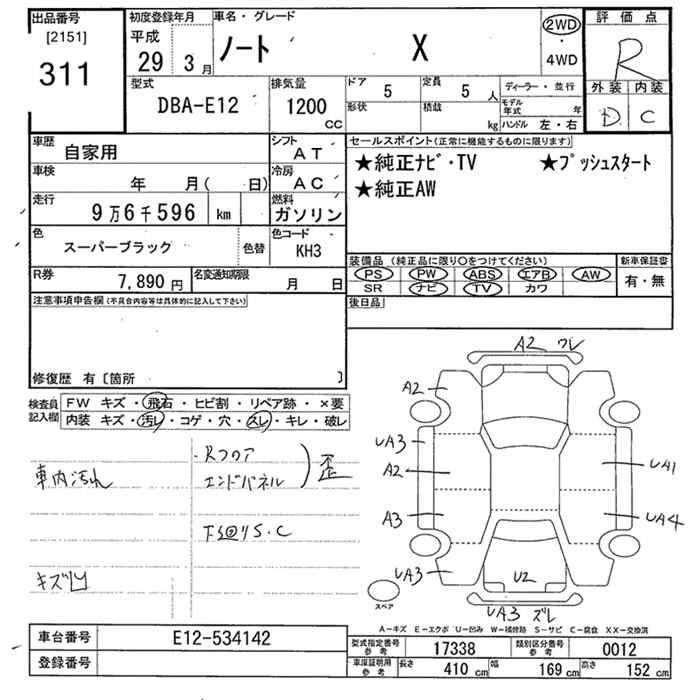 出品番号
[2151]
311
初度登録年月
平成
29 3 月
車名・グレード
ノート X
2WD
・
4WD
評価点
R
外装 内装
D C
型式
DBA-E12
排気量
1200
CC
ドア 5
形状
定員 5 人
積載 kg
ディーラー・並行
モデル年式 年
ハンドル 左・右
車歴
自家用
シフト
AT
車検
年 月( 日)
冷房
AC
走行
9万6千596 km
燃料
ガソリン
色
スーパーブラック
色替
色コード
KH3
R券
7,890 円
名変通知期限
月 日
セールスポイント(正常に機能するものに限ります)
★純正ナビ・TV ★プッシュスタート
★純正AW
装備品 (純正品に限り○をつけてください)
PS PW ABS エアB AW
SR ナビ TV カワ
新車保証書
有・無
後日品
注意事項申告欄(不具合内容等は具体的に記入して下さい)
修復歴 有〔箇所 〕
検査員
記入欄
FW キズ・飛石・ヒビ割・リペア跡・×要
内装 キズ・汚レ・コゲ・穴・スレ・キレ・破レ
・Rフロア
エンドパネル
歪
車内汚れ
下回りS・C
キズ凹
A2 ワレ
A2
UA3
A2
A3
UA3
UA1
UA4
U2
UA3 ズレ
スペア
A-キズ E-エクボ U-凹み W-補修跡 S-サビ C-腐食 XX-交換済
車台番号
E12-534142
登録番号
型式指定番号
参考
17338
類別区分番号
参考
0012
車庫証明用
参考
長さ 410 cm 幅 169 cm 高さ 152 cm